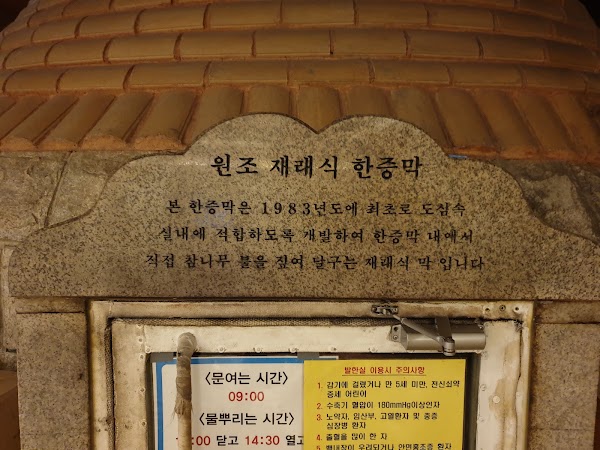 원조 재래식 한증막
본 한증막은 1983년도에 최초로 도심속
실내에 적합하도록 개발하여 한증막 내에서
직접 참나무 불을 짚여 달구는 재래식 막 입니다
〈문여는 시간〉
09:00
〈물뿌리는 시간〉
:00 닫고 14:30 열고
발한실 이용시 주의사항
1. 감기에 걸렸거나 만 5세 미만, 전신쇠약
증세 어린이
2. 수축기 혈압이 180mmHg이상인자
3. 노약자, 임산부, 고열환자 및 중증
심장병 환자
4. 출혈을 많이 한 자
5. 백내장이 우려되거나 안면홍조증 환자